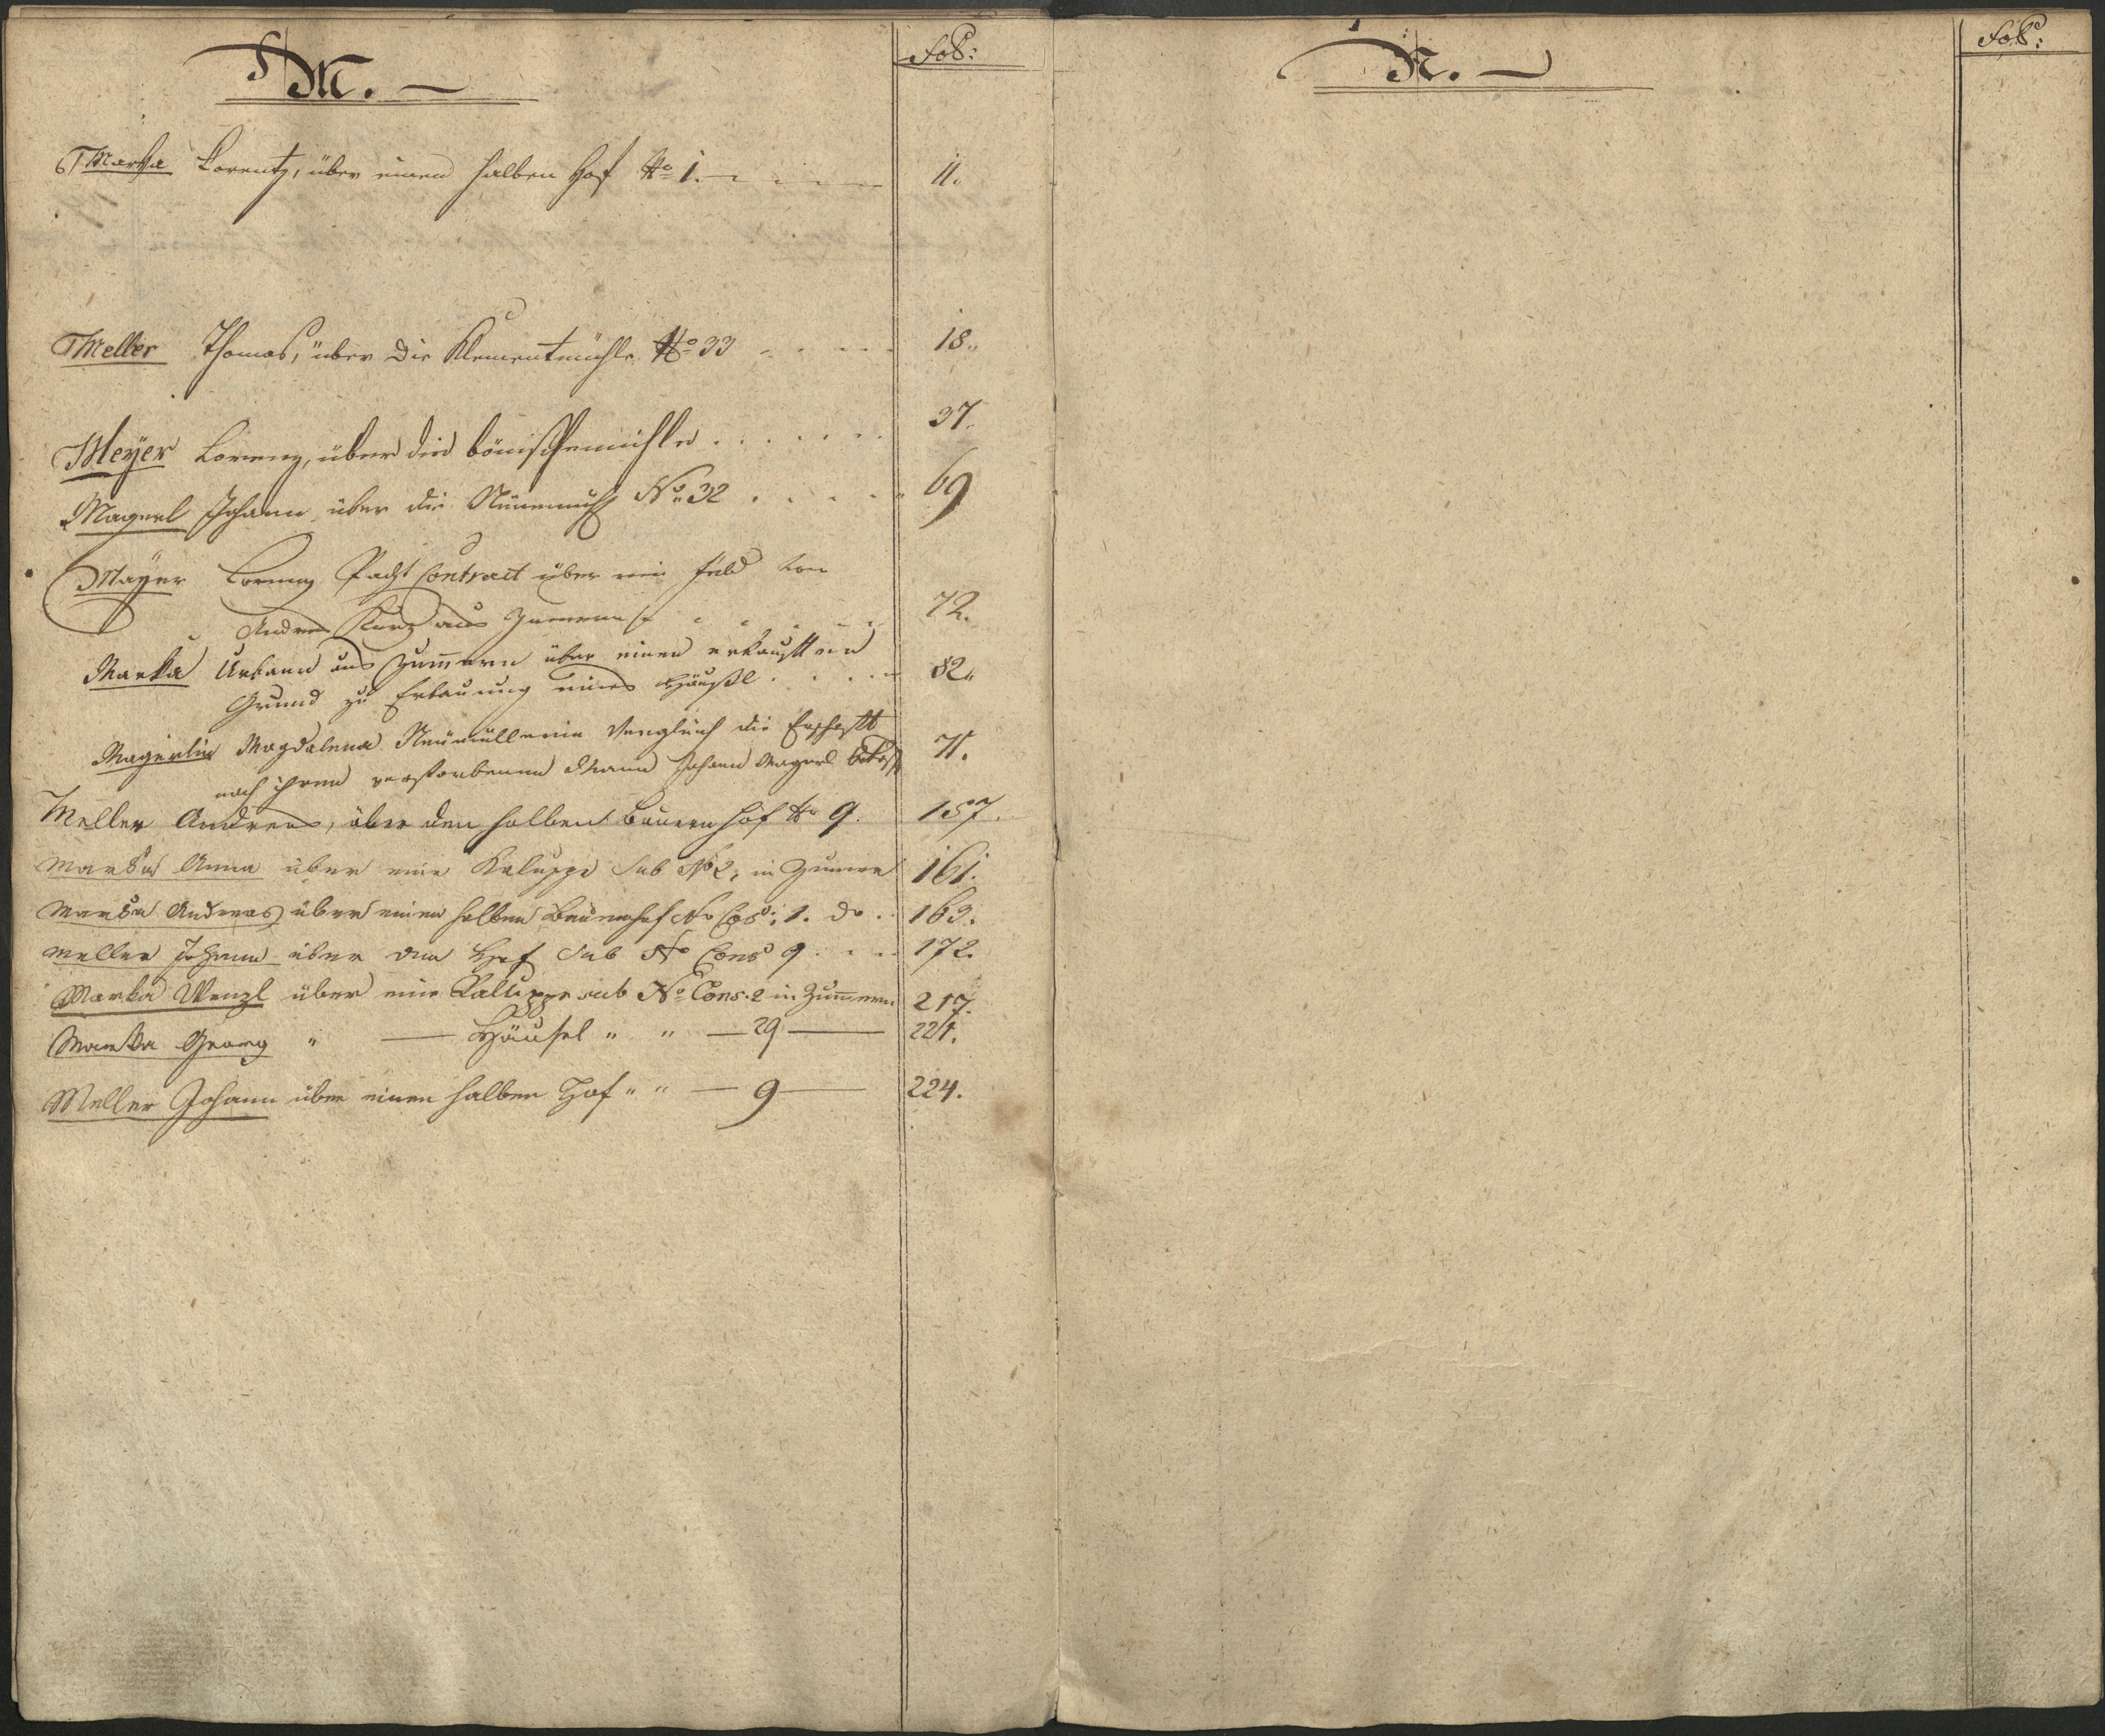 M.
Fol:
Marka Lorentz, über einen halben Hof No 1. 11.
Meller Thomas, über die Klementmühle No 33 18.
Meyer Lorenz, über die bömischemühle 37.
Magerl Johann über die Neuemühl No. 32 69
Mayer Lorenz Pacht Contract über ein Feld von
Andres Kurz aus 72.
Marka Urbann aus Zummern über einen erkauften
Grund zu Erbauung eines Häußl 82.
Magerlin Magdalena Neumüllerin Vergleich die Erbschaft
nach ihren verstorbenen Mann Johann Magerl 71.
Meller Andreas, über den halben Bauern hof No 9. 157.
Marka Anna über eine Kaluppe sub No 2, in Zumern 161.
Marka Andreas über einen halben Bauernhof No Cos: 1. do 163.
Meller Johann über den Hof Sub No Cons 9 172.
Marka Wenzl über eine Kaluppe sub No Cons. 2 in Zummern 217.
Marka Georg " — Häusel " " — 29 — 221.
Meller Johann über einen halben Hof " " — 9 — 224.
N.
Fol: